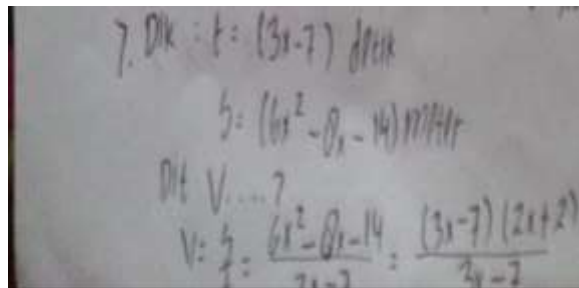 7. Dik : t = (3x-7) detik
S = (6x² - 8x - 14) meter
Dit V....?
V = S/t = (6x² - 8x - 14)/(3x-7) = ((3x-7)(2x+2))/(3x-7)